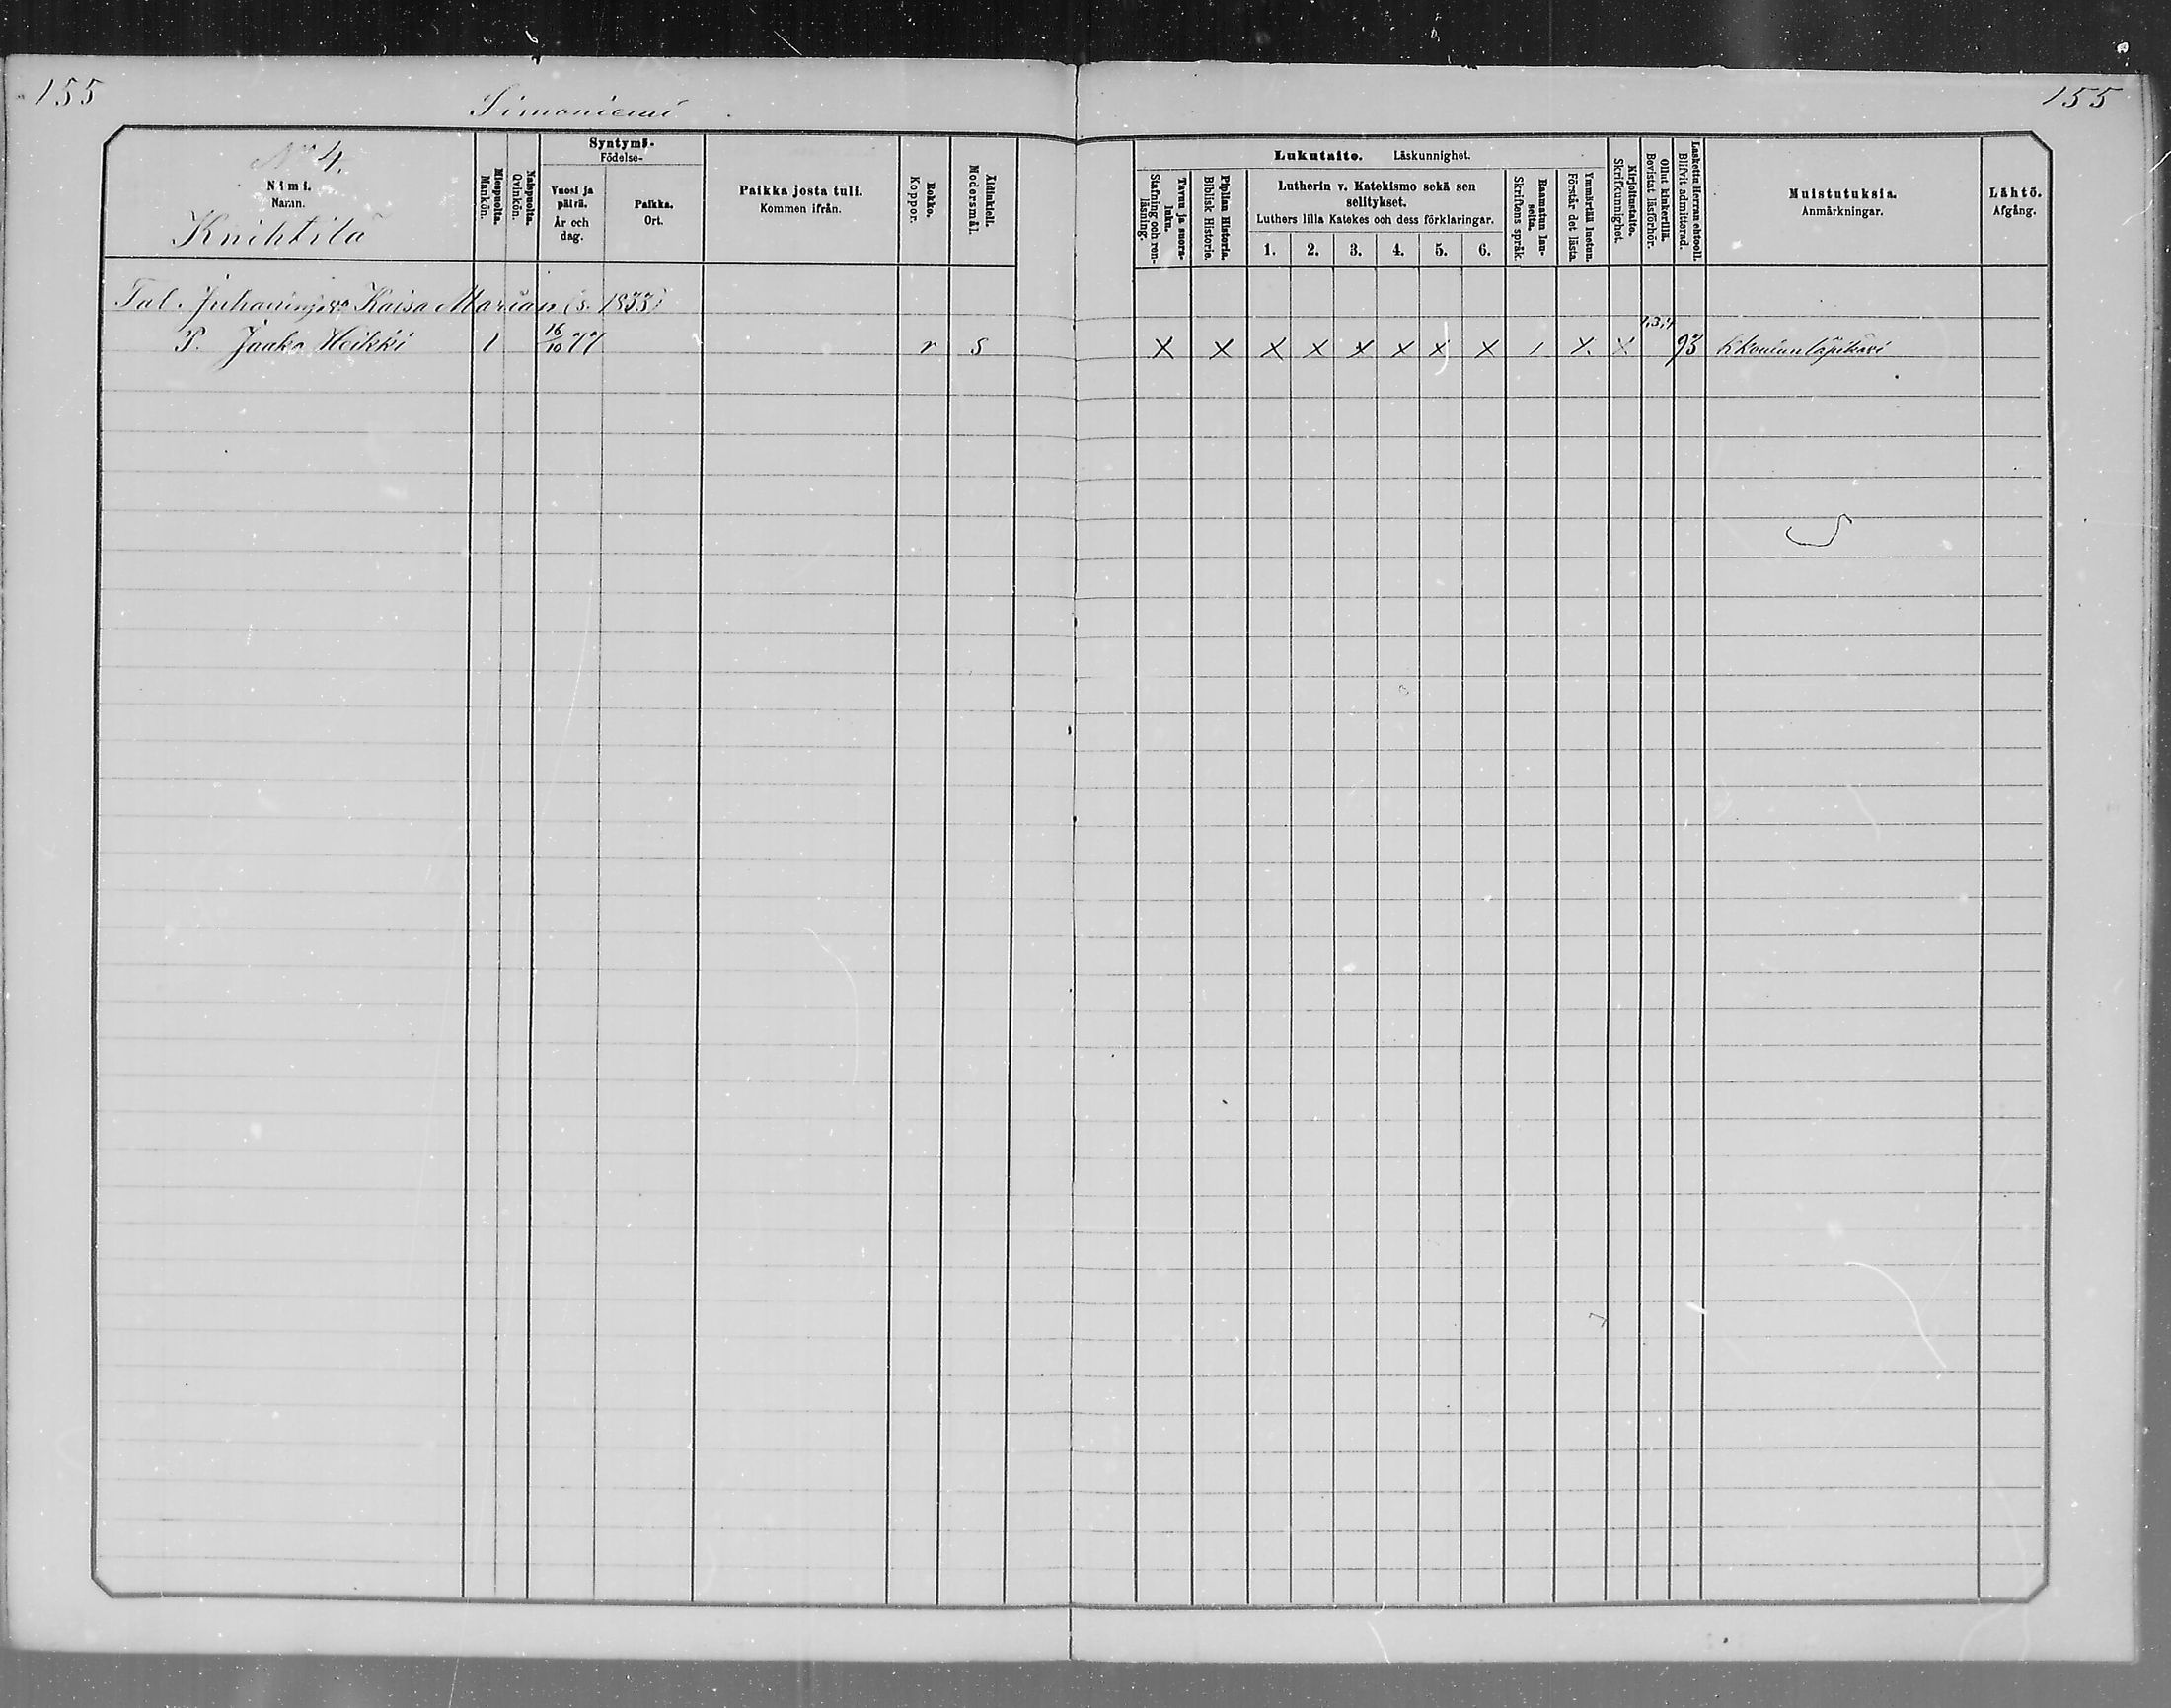 155
Simoniemi
155
No 4.
Nimi.
Namn.
Knihtilä
Miespuolta.
Mankön.
Naispuolta.
Qvinkön.
Syntymä-
Födelse-
Vuosi ja päivä.
År och dag.
Paikka.
Ort.
Paikka josta tuli.
Kommen ifrån.
Rokko.
Koppor.
Äidinkieli.
Modersmål.
Lukutaito. Läskunnighet.
Tavuu ja suoraluku.
Stafning och renläsning.
Piplian Historia.
Biblisk Historie.
Lutherin v. Katekismo sekä sen
selitykset.
Luthers lilla Katekes och dess förklaringar.
1. 2. 3. 4. 5. 6.
Raamatun lauseita.
Skriftens språk.
Ymmärtää luetun.
Förstår det lästa.
Kirjoitustaito.
Skrifkunnighet.
Ollut kinkerillä.
Bevistat läsförhör.
Laskettu Herran ehtooll.
Blifvit admitterad.
Muistutuksia.
Anmärkningar.
Lähtö.
Afgång.
Tal. Juhanin ja Kaisa Marian (s. 1833)
P. Jaako Heikki 1 16/10 77 r s X X X X X X X X / X. X 93